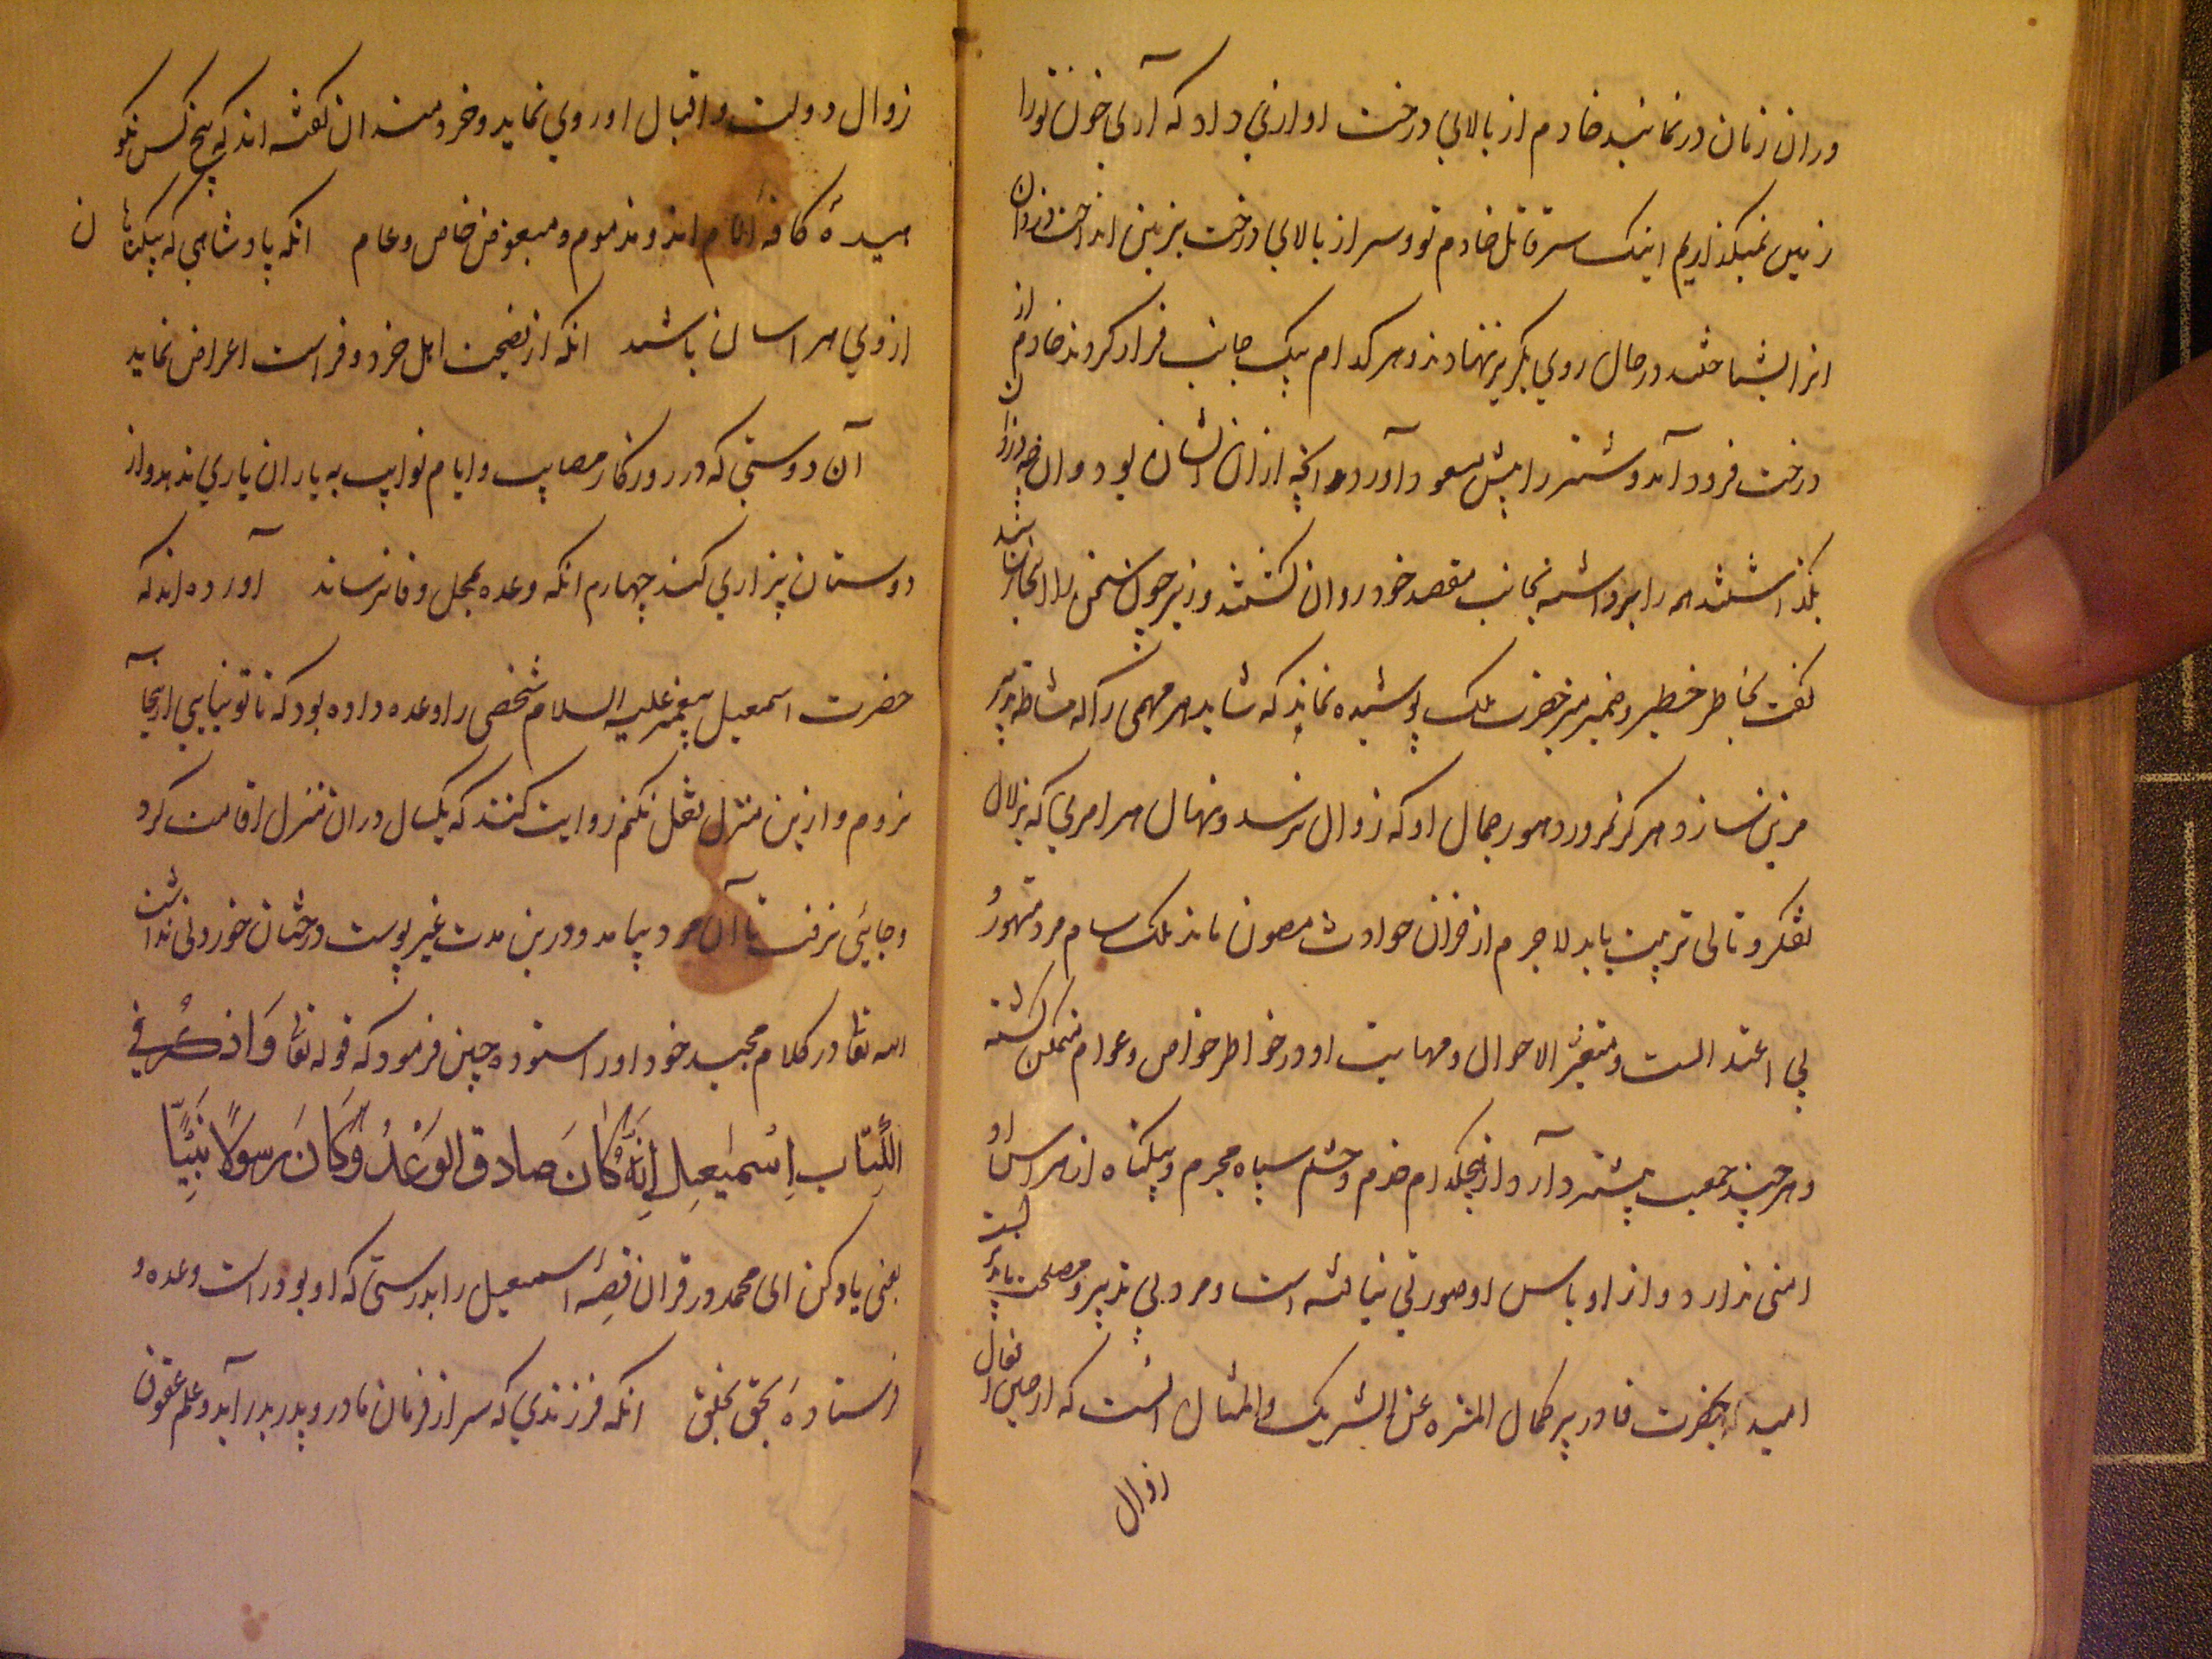 دران زمان درنمانید خادم از بالای درخت اوازی داد که آری خون تو را
زمین نمیکذاریم اینک سر قاتل خادم تو و سر از بالای درخت بزمین انداخت دزدان
انرا بشناختند در حال روی بکریز نهادند و هر کدام بیک جانب فرار کردند خادم از
درخت فرود آمد و شتر را پیش سعو د آورد و انچه از ان ایشان بود و ان چه دزدان
بکذاشتند همه را برداشته بجانب مقصد خود روان کشتند وزیر چون سخن را اینجا رسانید
کفت بخاطر خطیر و ضمیر منیر حضرت ملک پوشیده نماند که شاید هر مهمی را که مشاطه تدبیر
مزین نسازد هرکز نمرود و همور جمال او که زوال نرسد و نهال هر امری که بزلال
تفکر و تانی تربیت یابد لاجرم از خزان حوادث مصون ماند ملک سام مرد متهور
بی اعتدالست و متغیر الاحوال و مهابت او در خواطر خواص و عوام متمکن کشته
و هر چند جمعیت بیشتر دارد و از هیچکدام خدم و حشم سپاه مجرم و بیکناه از هراس او
امنی ندارد و از او باس او صورتی نیافته است و مرد بی تدبیر و مصلحت
امید بحضرت قادر بر کمال المنزه عن الشریک و المثال انست که از حین افعال
زوال
زوال دولت و اقبال او روی نماید و خردمندان کفته اند که پنج کس نکو
هیدهٔ کافهٔ انام اند و مذموم و مبغوض خاص و عام انکه پادشاهی که بیکناهان
ازوی هراسان باشند انکه از نصیحت اهل خرد و فراست اعراض نماید
آن دوستی که در روزکار مصایب و ایام نوایب به یاران یاری ندهد و از
دوستان بیزاری کند چهارم انکه وعده بمحل وفا نرساند آورده اند که
حضرت اسمعیل پیغمبر علیه السلام شخصی را وعده داده بود که تا تو نیایی از اینجا
نروم و ازین منزل نقل نکنم روایت کنند که یکسال دران منزل اقامت کرد
و جایی نرفت تا آن مرد بیامد و درین مدت غیر پوست درختان خوردنی نداشت
الله تعا در کلام مجید خود او را ستوده چنین فرمود که قوله تعا وَاذكُر في
الكِتاب اِسْمٰعِيل اِنَّهُ كانَ صادق الوَعْدُ وَكانَ رسولاً نَبِيّاً
یعنی یاد کن ای محمد در قران قصهٔ اسمعیل را بدرستی که او بود راست وعده و
فرستادهٔ بحق بخلق انکه فرزندی که سر از فرمان مادر و پدر بدر آید و علم عقوق